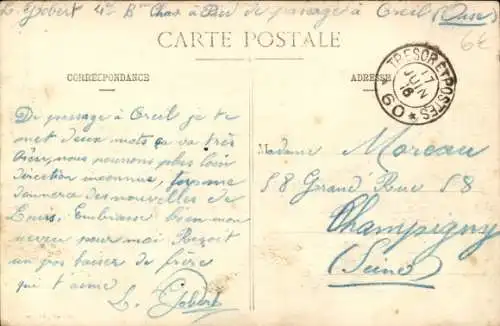 L. Gobert 4e Bon Chas à Pied de passage à Creil (Oise)
6€
CARTE POSTALE
CORRESPONDANCE
ADRESSE
TRESOR ET POSTES
17
JUIN
16
* 60 *
De passage à Creil je te
met deux mots ça va très
bien, nous pouvons plus loin
direction inconnue,
donnera des nouvelles de
Embrasse bien mon
neveu pour moi Reçoit
un gros baiser de frère
qui t'aime
L. Gobert
Madame Moreau
58 Grand Rue 58
Champigny
(Seine)